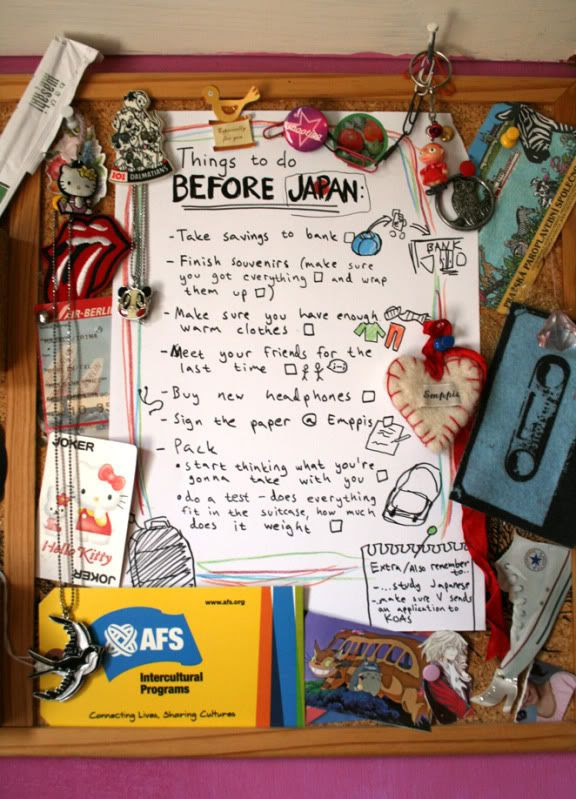 musashi
101 DALMATIANS
Especially
for you
Things to do
BEFORE JAPAN:
- Take savings to bank
BANK
- Finish souvenirs (make sure
you got everything and wrap
them up )
- Make sure you have enough
warm clothes
- Meet your friends for the
last time
- Buy new headphones
- Sign the paper @ Emppis
- Pack
• start thinking what you're
gonna take with you
• do a test - does everything
fit in the suitcase, how much
does it weight
Extra/Also remember
to..
-...study Japanese
- make sure V sends
an application to
KOAS
AIR-BERLIN
JOKER
Hello Kitty
JOKER
PRAŽSKÁ PAROPLAVEBNÍ SPOLEČ
CONVERSE
www.afs.org
AFS
Intercultural
Programs
Connecting Lives, Sharing Cultures